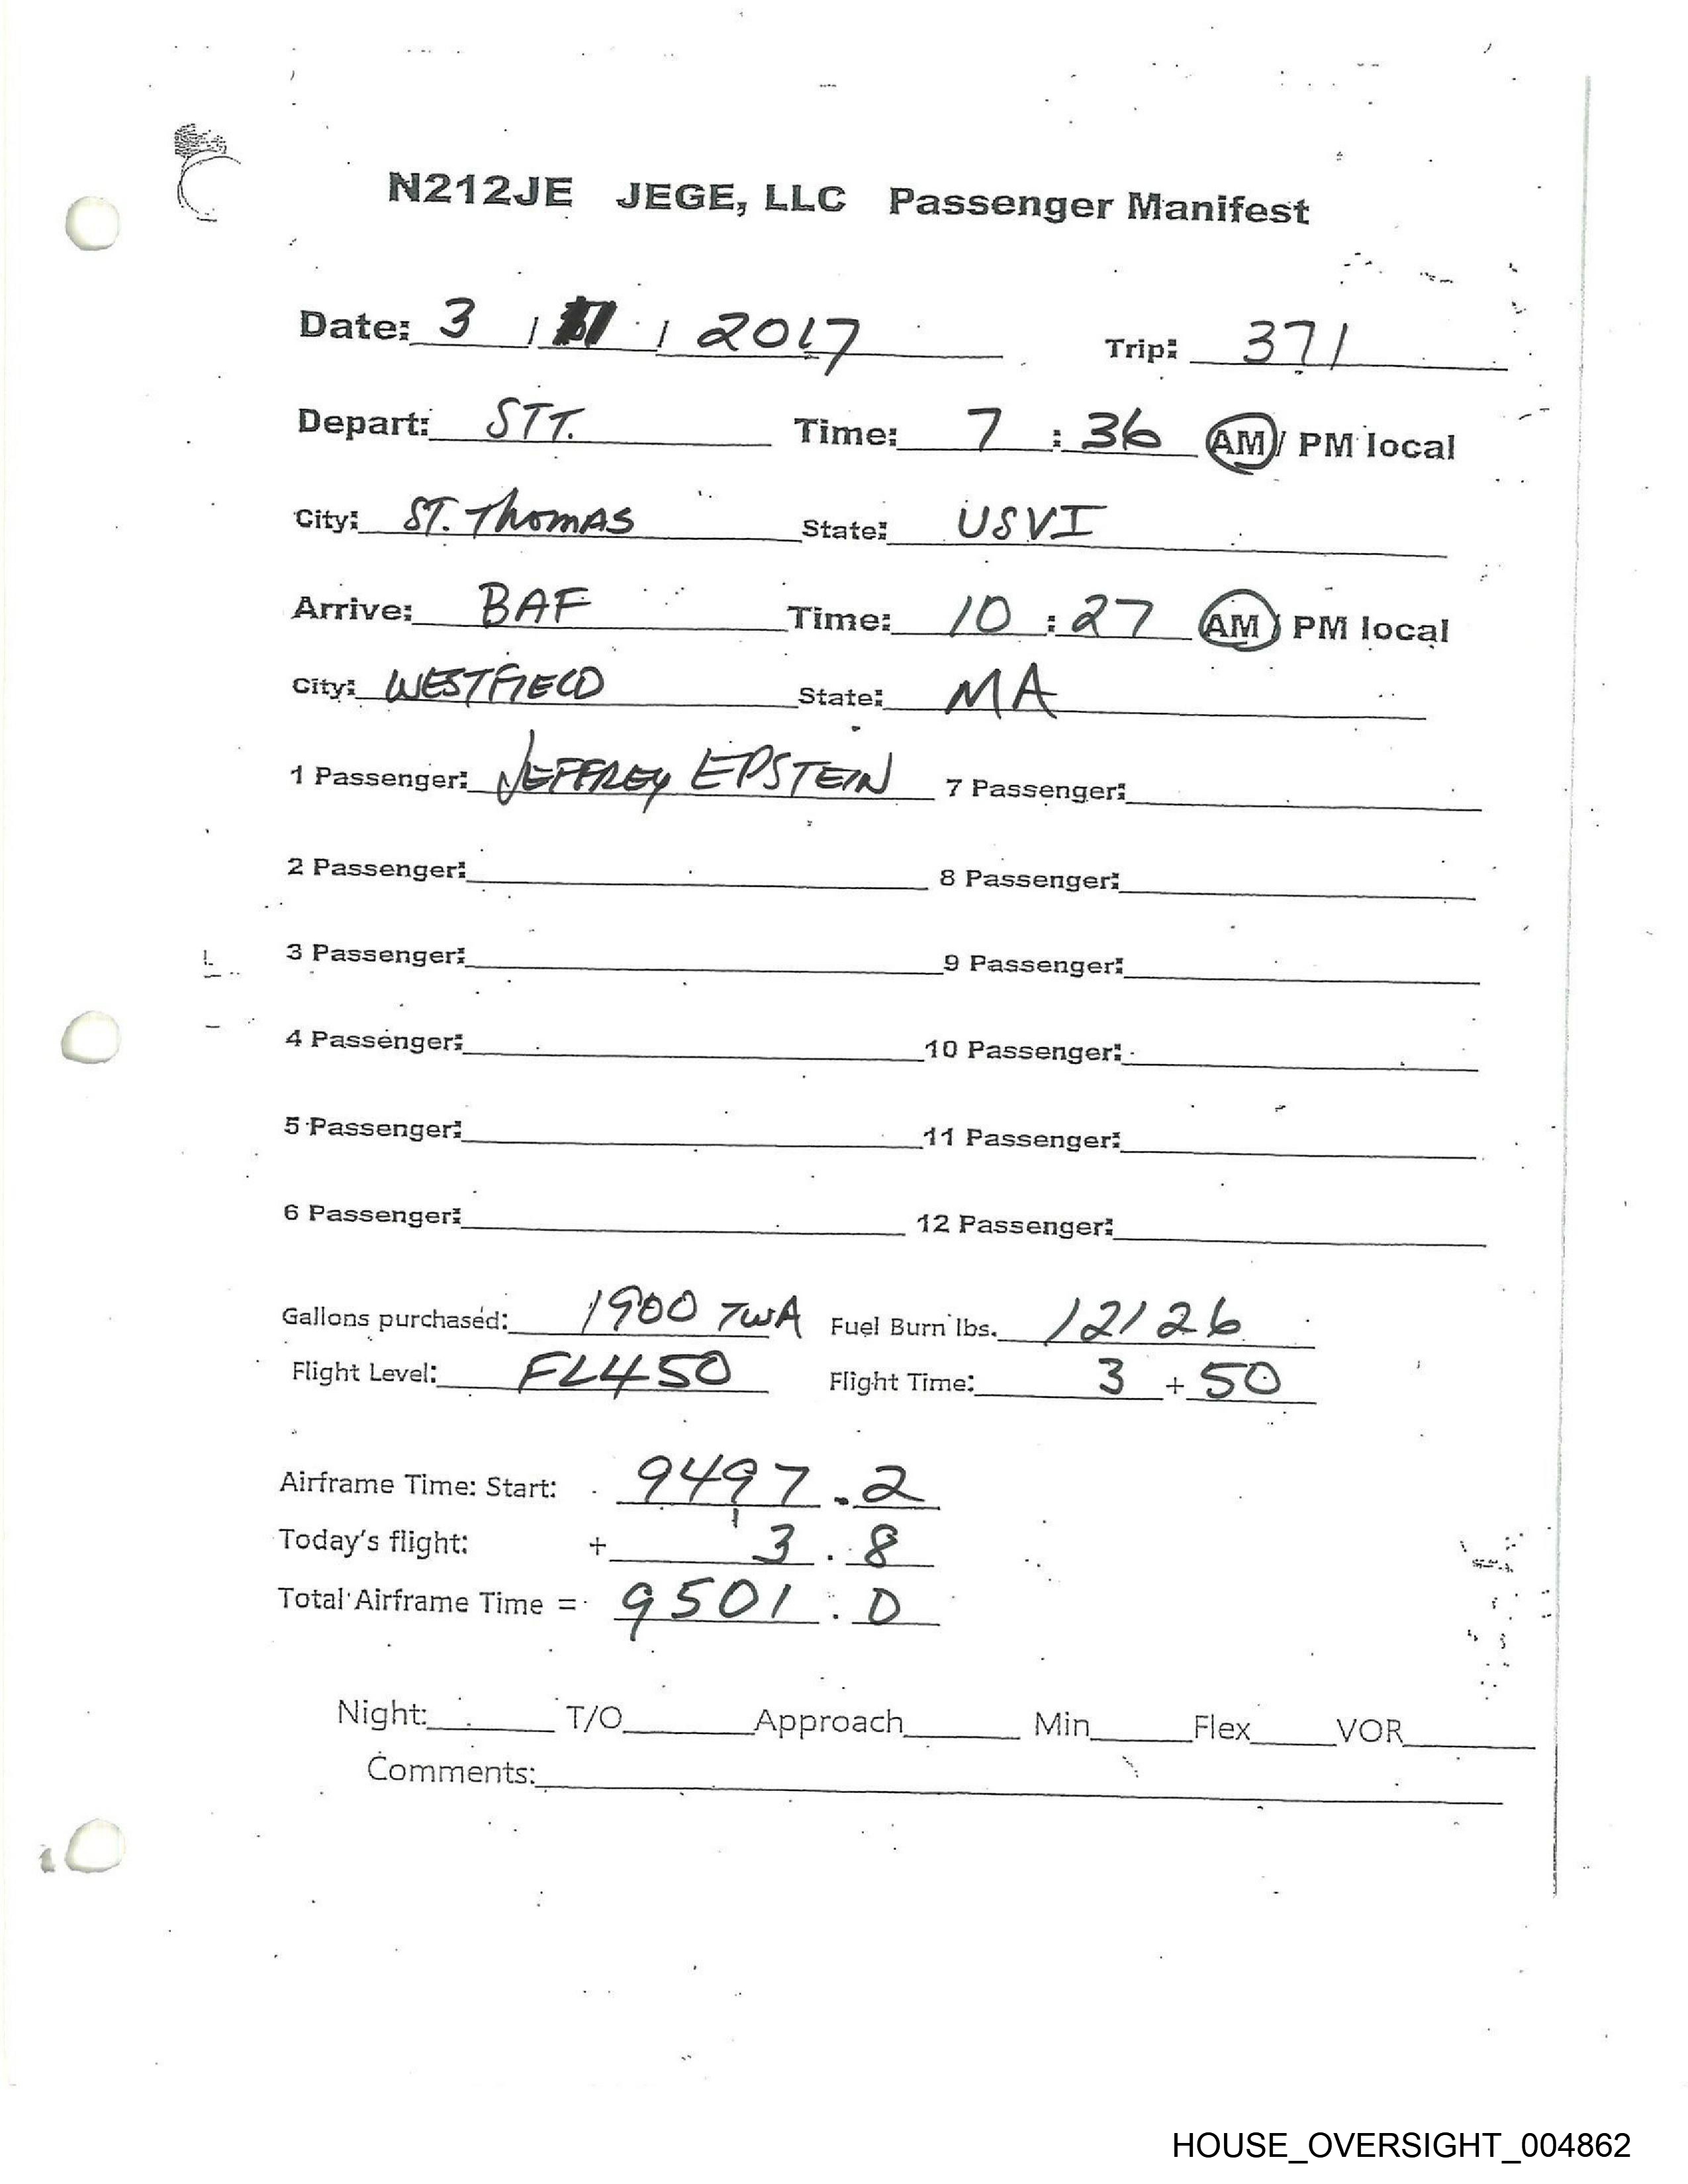 N212JE JEGE, LLC Passenger Manifest
Date: 3 / / 2017 Trip: 371
Depart: STT. Time: 7 : 36 AM / PM local
City: ST. THOMAS State: USVI
Arrive: BAF Time: 10 : 27 AM / PM local
City: WESTFIELD State: MA
1 Passenger: JEFFREY EPSTEIN 7 Passenger:
2 Passenger: 8 Passenger:
3 Passenger: 9 Passenger:
4 Passenger: 10 Passenger:
5 Passenger: 11 Passenger:
6 Passenger: 12 Passenger:
Gallons purchased: 1900 TWA Fuel Burn lbs. 12126
Flight Level: FL450 Flight Time: 3 + 50
Airframe Time: Start: 9497.2
Today's flight: + 3.8
Total Airframe Time = 9501.0
Night: T/O Approach Min Flex VOR
Comments:
HOUSE_OVERSIGHT_004862